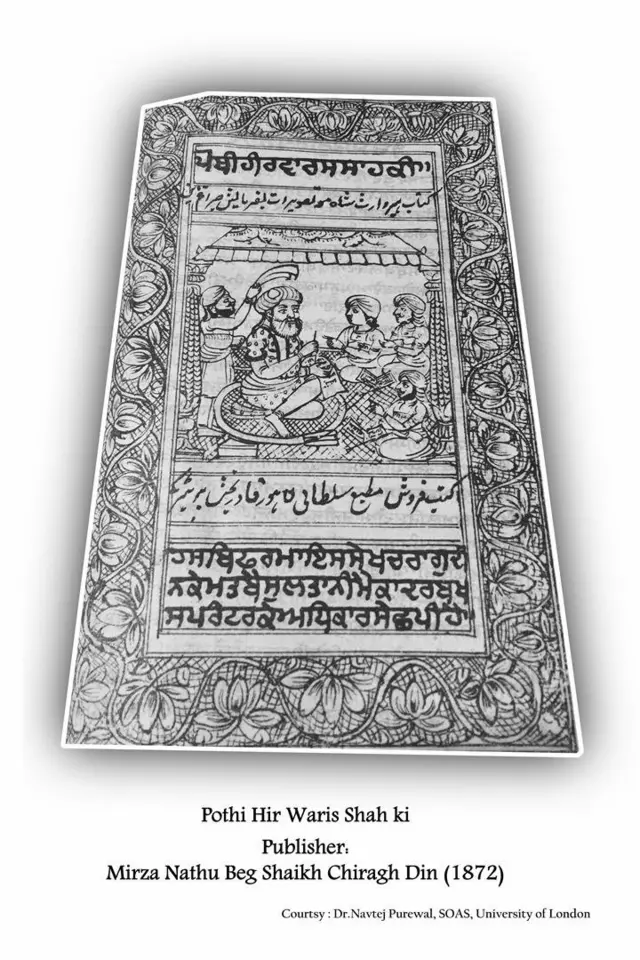 ਪੋਥੀਹੀਰਵਾਰਸਸਾਹਕੀ
کتاب ہیر وارث شاہ معہ تصویرات بفرمایش چراغدین
کتب فروش مطبع سلطانی لاہور قادر بخش پرنٹر
ਹਸਬਿਫੁਰਮਾਇਸਸੇਖਚਰਾਗੁਦੀ
ਨਕੇਮਤਬੈਸੁਲਤਾਨੀਮੈਕਾਦਰਬਖ
ਸਪਰਿੰਟਰਕੇਅਧਿਕਾਰਸੇਛਪੀਹੈ
Pothi Hir Waris Shah ki
Publisher:
Mirza Nathu Beg Shaikh Chiragh Din (1872)
Courtsy : Dr.Navtej Purewal, SOAS, University of London